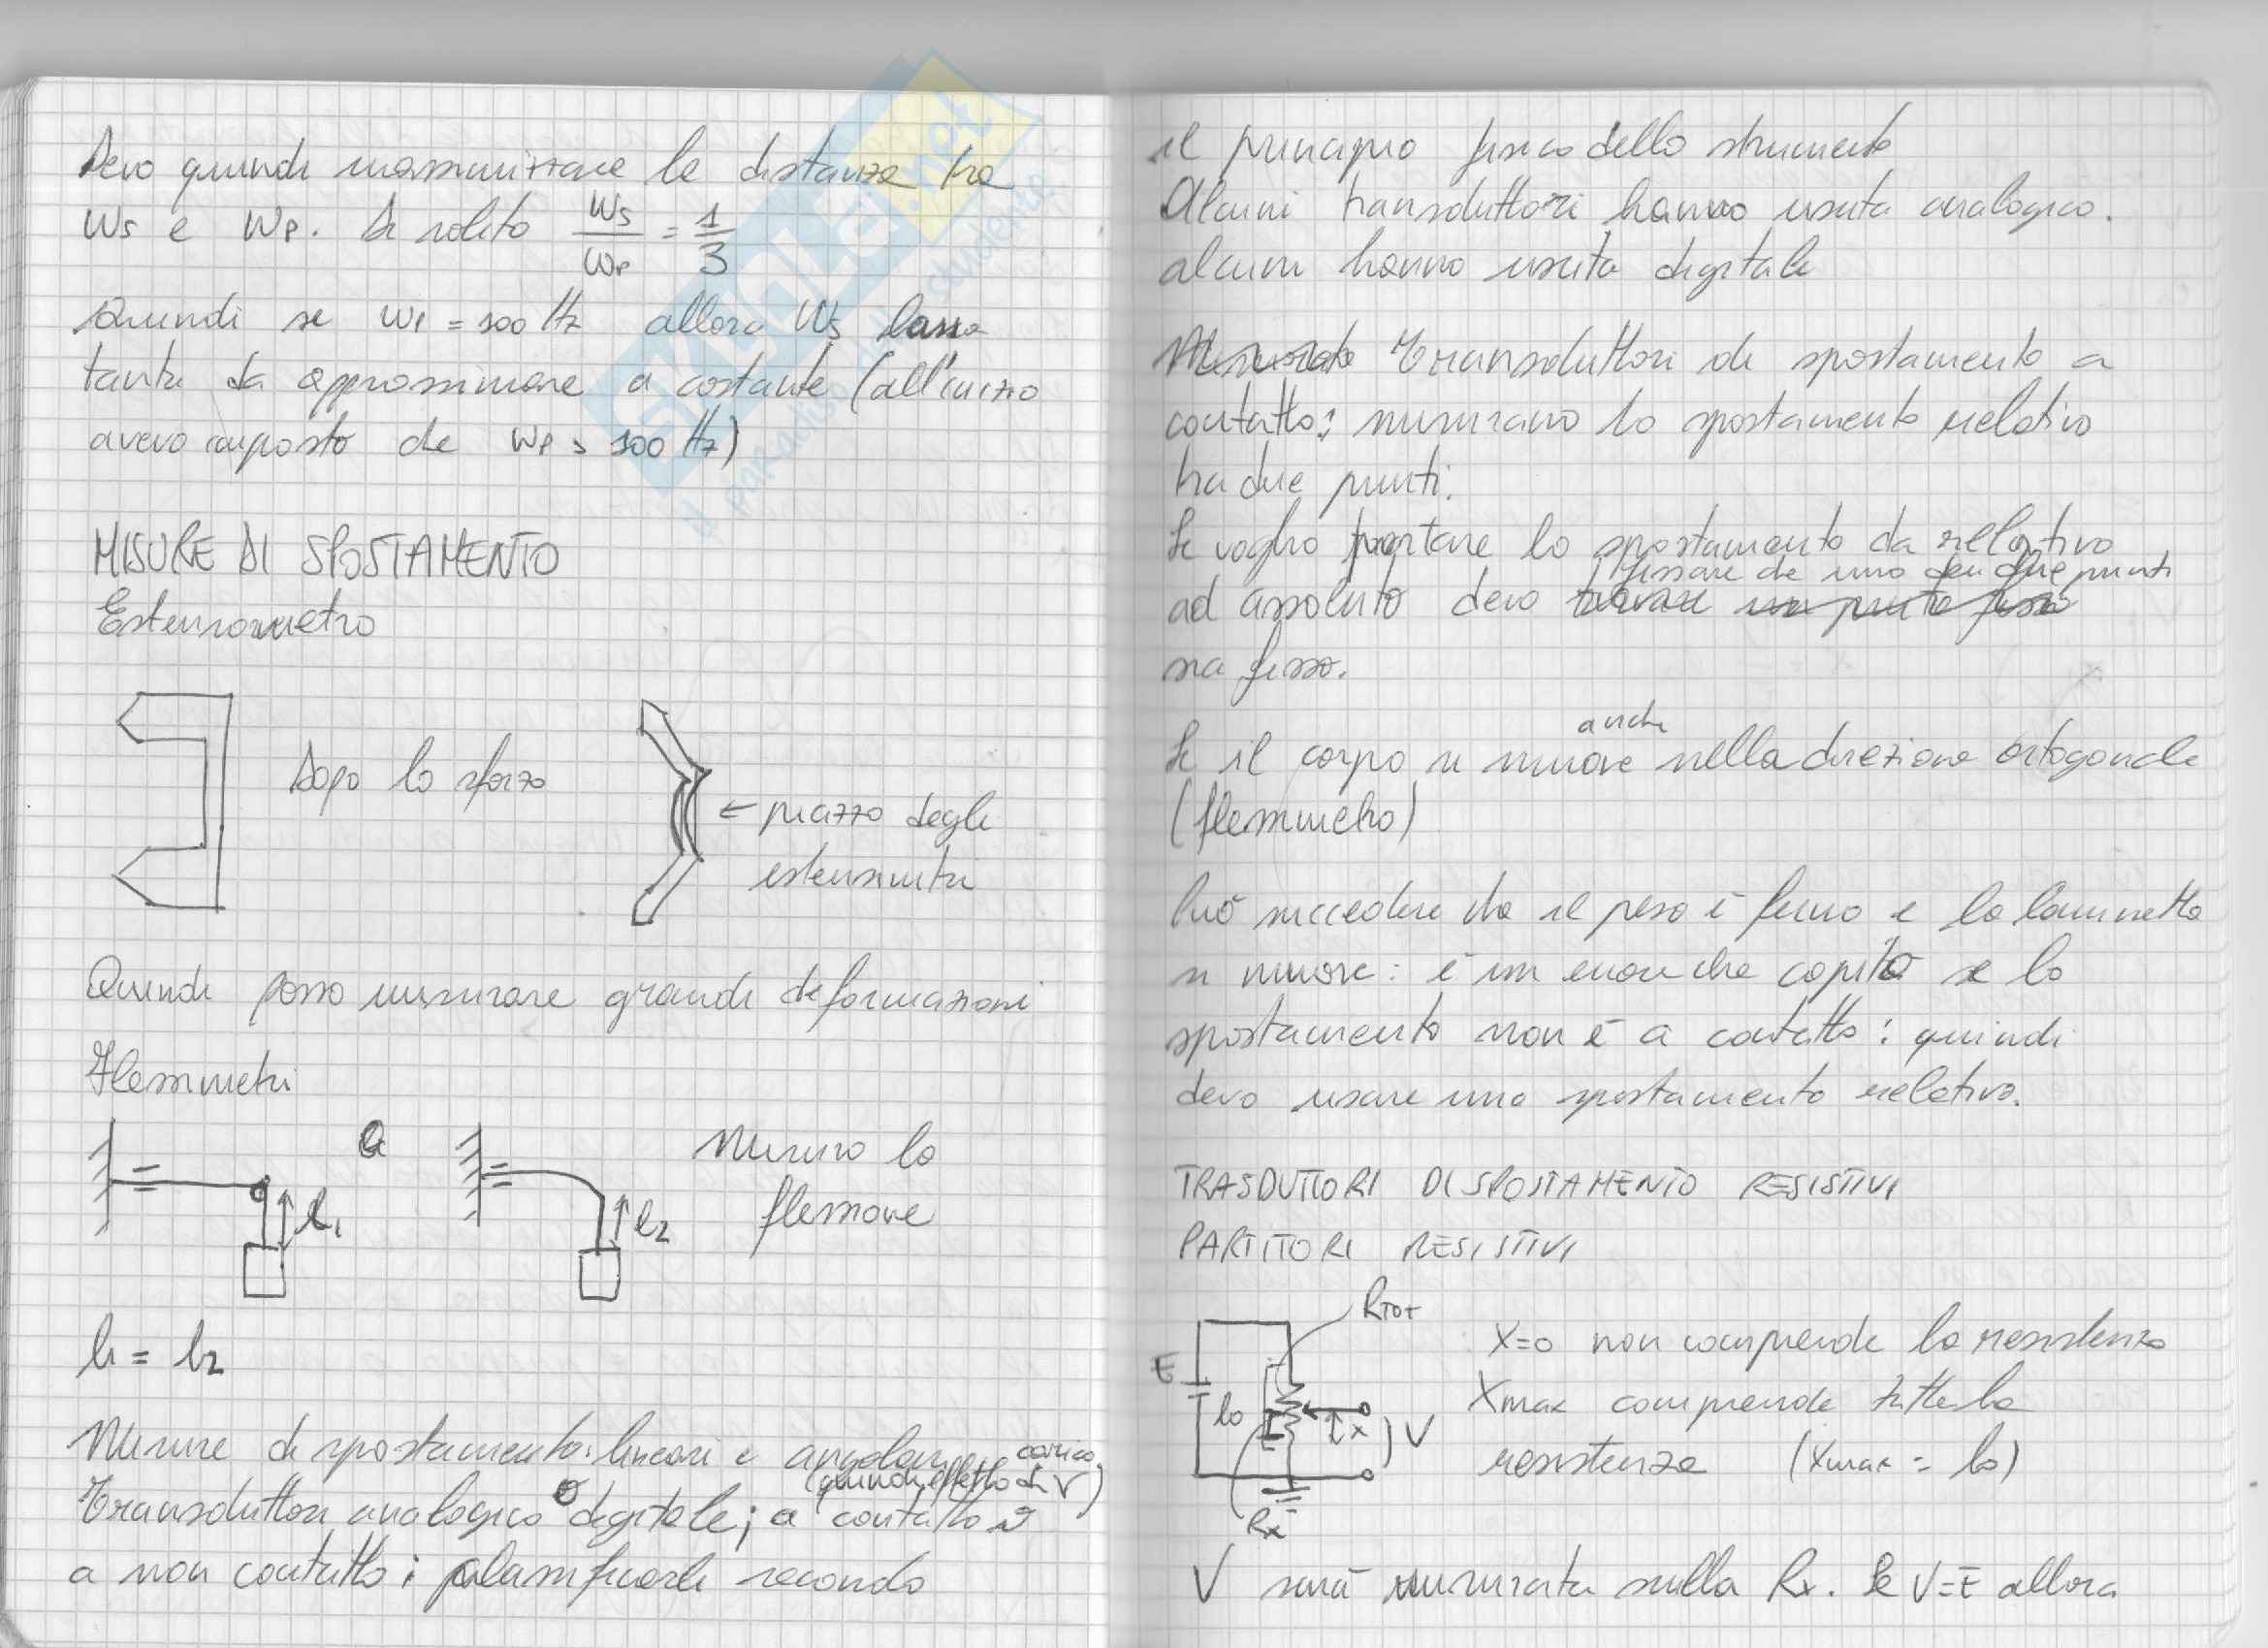 Devo quindi massimizzare la distanza tra
ws e wp. Di solito ws/wp = 1/3
Quindi se wp = 100 Hz allora ws bassa
tanto da approssimare a costante (all'inizio
avevo imposto che wp > 100 Hz)
MISURE DI SPOSTAMENTO
Estensometro
Dopo lo sforzo
← piazzo degli
estensimetri
Quindi posso misurare grandi deformazioni
Flessimetri
l1
l2
Misuro la
flessione
l1 = l2
Misure di spostamento: lineari e angolari
carico
(quindi effetto di V)
Transduttori analogico o digitale; a contatto o
a non contatto; classificarli secondo
il principio fisico dello strumento
Alcuni transduttori hanno uscita analogico.
alcuni hanno uscita digitale
Transduttori di spostamento a
contatto: misurano lo spostamento relativo
tra due punti.
Se voglio portare lo spostamento da relativo
fissare che uno dei due punti
ad assoluto devo trovare un punto fisso
sia fisso.
anche
Se il corpo si muove nella direzione ortogonale
(flessimetro)
Può succedere che il peso è fermo e la laminetta
si muove: è un errore che capita se lo
spostamento non è a contatto: quindi
devo usare uno spostamento relativo.
TRASDUTTORI DI SPOSTAMENTO RESISTIVI
PARTITORI RESISTIVI
RTOT
E
l0
x
V
Rx
X=0 non comprende la resistenza
Xmax comprende tutta la
resistenza (Xmax = l0)
V sarà misurata sulla Rx. Se V=E allora
skuola.net
il paradiso dello studente